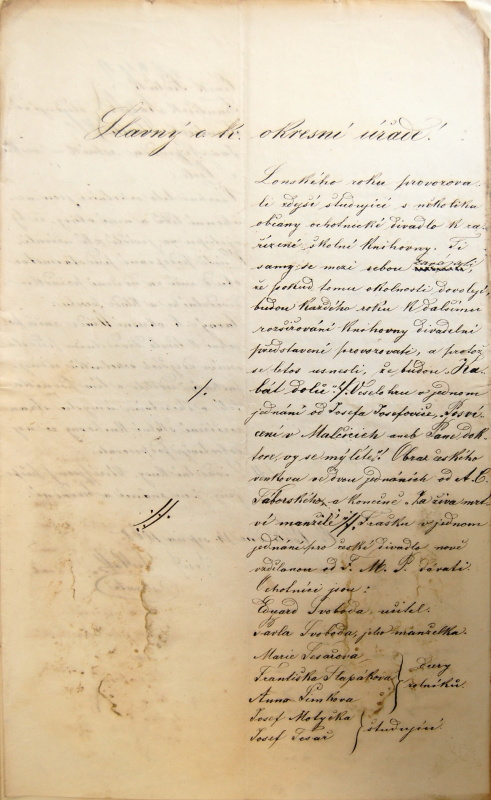 Slavný c. k. okresní úřade!
Lonského roku provozova-
li zdejší studující s několika
občany ochotnické divadlo k za-
řízené školní knihovny. Ti
samy se mezi sebou
že pokud tomu okolnosti dovolejí,
budou každého roku k dalšímu
rozšiřování knihovny divadelní
představení provozovati, a protož
se letos usnesli, že budou „Ka-
bát dolů“ ·/. Veselohru o jednom
jednání od Josefa Josefoviče, Posví-
cení v Malčicích aneb Pane dok-
tore, vy se mýlíte! Obraz českého
venkova ve dvou jednáních od A. E.
Táborského, a konečně „Za živa mrt-
ví manželé“ ·//. Frašku v jednom
jednání pro české divadlo nově
vzdělanou od F. M. P. dávati.
Ochotníci jsou:
Eduard Svoboda, učitel.
Pavla Svoboda, jeho manželka.
Marie Tesařová
Františka Šlapáková
Anna Šimkova
dcery
rolníků.
Josef Motyčka
Josef Tesař
studující.
·/.
·//.